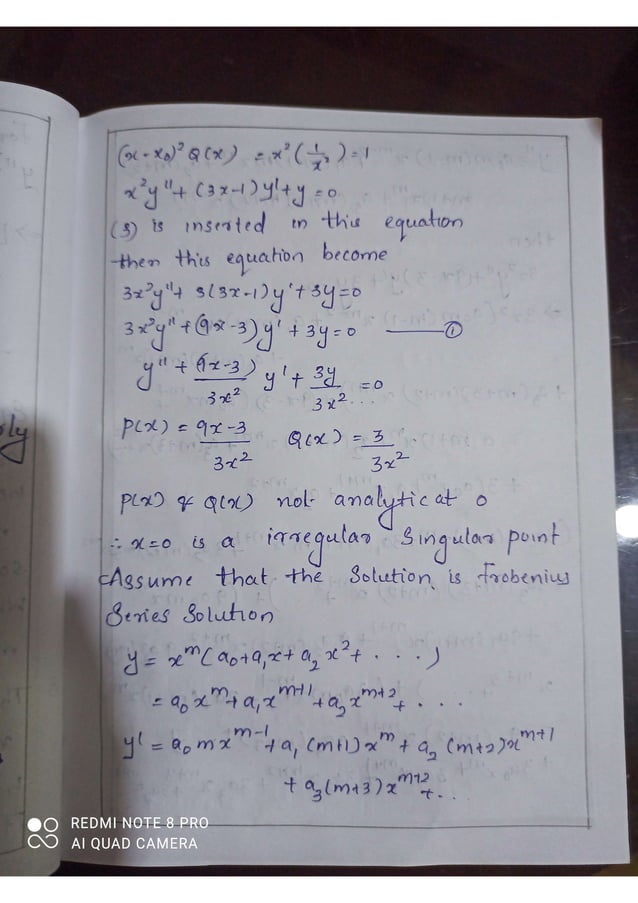 (x-x₀)² Q(x) = x² (1/x²) = 1
x²y'' + (3x-1) y' + y = 0
(3) is inserted in this equation
then this equation become
3x²y'' + 3(3x-1) y' + 3y = 0
3x²y'' + (9x-3) y' + 3y = 0 ——— ①
y'' + (9x-3)/3x² y' + 3y/3x² ... = 0
P(x) = 9x-3/3x² Q(x) = 3/3x² .
P(x) & Q(x) not analytic at 0
∴ x=0 is a irregular Singular point
Assume that the Solution is Frobenius
Series Solution
y = x^m (a₀+a₁x+a₂x²+ . . . .)
= a₀x^m + a₁x^m+1 + a₂x^m+2 + . . .
y' = a₀mx^m-1 + a₁ (m+1) x^m + a₂ (m+2)x^m+1
+ a₃(m+3)x^m+2 + ...
REDMI NOTE 8 PRO
AI QUAD CAMERA